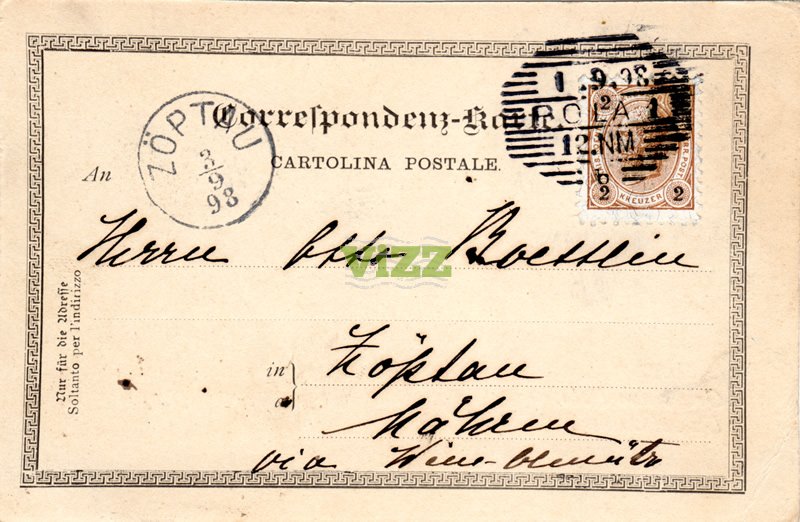 1 9.98
POLA 1
12.NM
6
2
2 KREUZER 2
ZÖPTAU
3/9
98
Correspondenz-Karte
CARTOLINA POSTALE.
An
Herrn Otto Boettlin
VIZZ
in Zöptau
Mähren
via Wien-Olmütz
Nur für die Adresse
Soltanto per l'indirizzo